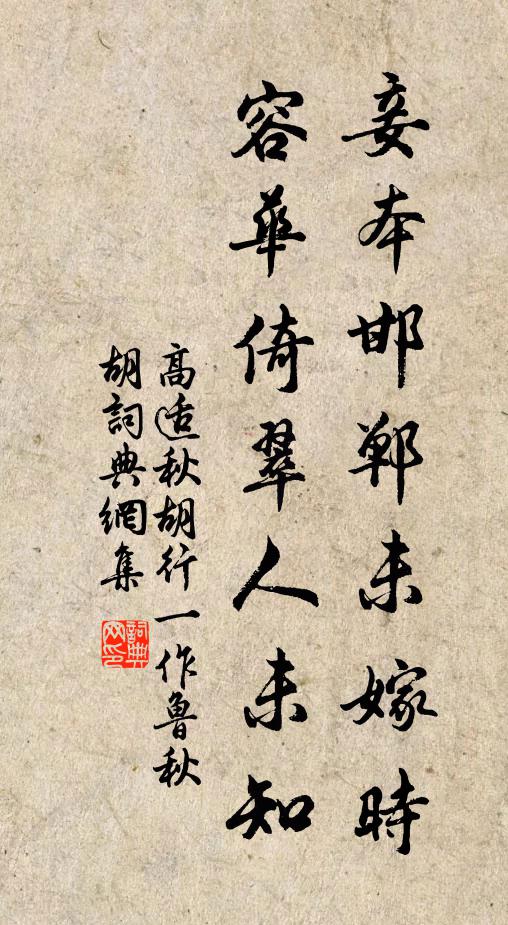 妾本邯鄲未嫁時
容華倚翠人未知
高適秋胡行一作魯秋
胡詞典網集
詞典
网印